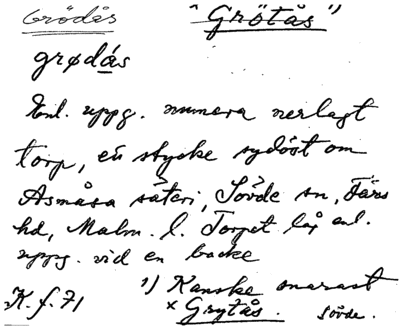 Grödås "Grötås" 1)
grødás
Enl. uppg. numera nerlagt
torp, ett stycke sydöst om
Åsmåsa säteri, Sövde sn, Färs
hd, Malm. l. Torpet låg enl.
uppg. vid en backe
1) Kanske snarast
K. f. 71 × Grytås. Sövde.